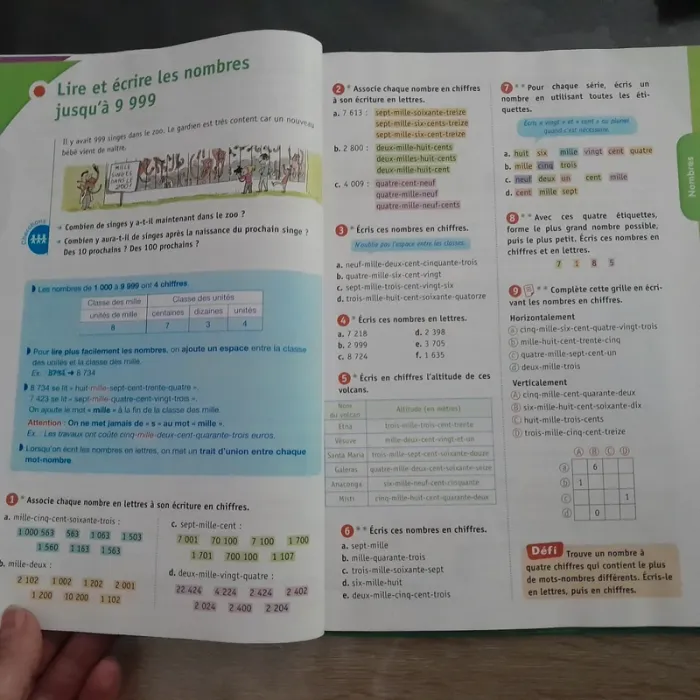 Lire et écrire les nombres
jusqu'à 9 999
Il y avait 999 singes dans le zoo. Le gardien est très content car un nouveau
bébé vient de naître.
MILLE
SINGES
DANS LE
ZOO!
Cherchons
• Combien de singes y a-t-il maintenant dans le zoo ?
• Combien y aura-t-il de singes après la naissance du prochain singe ?
Des 10 prochains ? Des 100 prochains ?
Les nombres de 1 000 à 9 999 ont 4 chiffres.
Classe des mille Classe des unités
unités de mille centaines dizaines unités
8 7 3 4
Pour lire plus facilement les nombres, on ajoute un espace entre la classe
des unités et la classe des mille.
Ex : 8734 → 8 734
8 734 se lit « huit-mille-sept-cent-trente-quatre ».
7 423 se lit « sept-mille-quatre-cent-vingt-trois ».
On ajoute le mot « mille » à la fin de la classe des mille.
Attention : On ne met jamais de « s » au mot « mille ».
Ex : Les travaux ont coûté cinq-mille-deux-cent-quarante-trois euros.
Lorsqu'on écrit les nombres en lettres, on met un trait d'union entre chaque
mot-nombre.
1 * Associe chaque nombre en lettres à son écriture en chiffres.
a. mille-cinq-cent-soixante-trois :
1 000 563 563 1 063 1 503
1 560 1 163 1 563
b. mille-deux :
2 102 1 002 1 202 2 001
1 200 10 200 1 102
c. sept-mille-cent :
7 001 70 100 7 100 1 700
1 701 700 100 1 107
d. deux-mille-vingt-quatre :
22 424 4 224 2 424 2 402
2 024 2 400 2 204
2 * Associe chaque nombre en chiffres
à son écriture en lettres.
a. 7 613 : sept-mille-soixante-treize
sept-mille-six-cents-treize
sept-mille-six-cent-treize
b. 2 800 : deux-mille-huit-cents
deux-milles-huit-cents
deux-mille-huit-cent
c. 4 009 : quatre-cent-neuf
quatre-mille-neuf
quatre-mille-neuf-cents
3 * Écris ces nombres en chiffres.
N'oublie pas l'espace entre les classes.
a. neuf-mille-deux-cent-cinquante-trois
b. quatre-mille-six-cent-vingt
c. sept-mille-trois-cent-vingt-six
d. trois-mille-huit-cent-soixante-quatorze
4 * Écris ces nombres en lettres.
a. 7 218 d. 2 398
b. 2 999 e. 3 705
c. 8 724 f. 1 635
5 * Écris en chiffres l'altitude de ces
volcans.
Nom
du volcan Altitude (en mètres)
Etna trois-mille-trois-cent-trente
Vésuve mille-deux-cent-vingt-et-un
Santa Maria trois-mille-sept-cent-soixante-douze
Galeras quatre-mille-deux-cent-soixante-seize
six-mille-neuf-cent-cinquante
Misti cinq-mille-huit-cent-quarante-deux
6 ** Écris ces nombres en chiffres.
a. sept-mille
b. mille-quarante-trois
c. trois-mille-soixante-sept
d. six-mille-huit
e. deux-mille-cinq-cent-trois
7 ** Pour chaque série, écris un
nombre en utilisant toutes les éti-
quettes.
Écris « vingt » et « cent » au pluriel
quand c'est nécessaire.
a. huit six mille vingt cent quatre
b. mille cinq trois
c. neuf deux un cent mille
d. cent mille sept
8 ** Avec ces quatre étiquettes,
forme le plus grand nombre possible,
puis le plus petit. Écris ces nombres en
chiffres et en lettres.
7 1 8 5
9 ** Complète cette grille en écri-
vant les nombres en chiffres.
Horizontalement
a cinq-mille-six-cent-quatre-vingt-trois
b mille-huit-cent-trente-cinq
c quatre-mille-sept-cent-un
d deux-mille-trois
Verticalement
A cinq-mille-cent-quarante-deux
B six-mille-huit-cent-soixante-dix
C huit-mille-trois-cents
D trois-mille-cinq-cent-treize
A B C D
a 6
b 1
c 1
d 0
Défi Trouve un nombre à
quatre chiffres qui contient le plus
de mots-nombres différents. Écris-le
en lettres, puis en chiffres.
Nombres